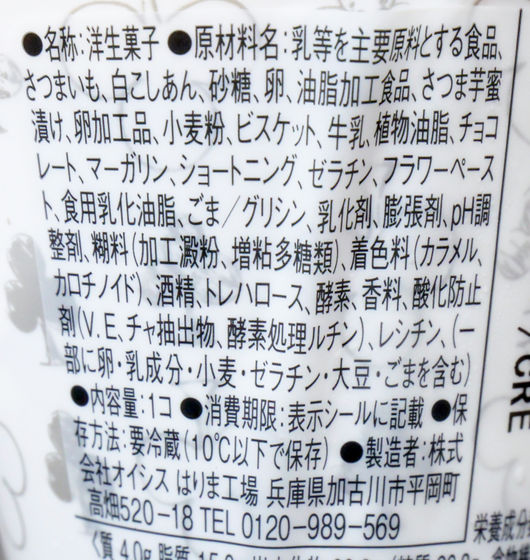 ●名称:洋生菓子 ●原材料名:乳等を主要原料とする食品、
さつまいも、白こしあん、砂糖、卵、油脂加工食品、さつま芋蜜
漬け、卵加工品、小麦粉、ビスケット、牛乳、植物油脂、チョコ
レート、マーガリン、ショートニング、ゼラチン、フラワーペース
ト、食用乳化油脂、ごま/グリシン、乳化剤、膨張剤、pH調
整剤、糊料(加工澱粉、増粘多糖類)、着色料(カラメル、
カロチノイド)、酒精、トレハロース、酵素、香料、酸化防止
剤(V.E、チャ抽出物、酵素処理ルチン)、レシチン、(一
部に卵・乳成分・小麦・ゼラチン・大豆・ごまを含む)
●内容量:1コ ●消費期限:表示シールに記載 ●保
存方法:要冷蔵(10℃以下で保存) ●製造者:株式
会社オイシス はりま工場 兵庫県加古川市平岡町
高畑520-18 TEL 0120-989-569
CRE
栄養成分
質 4.0g 脂質 15.